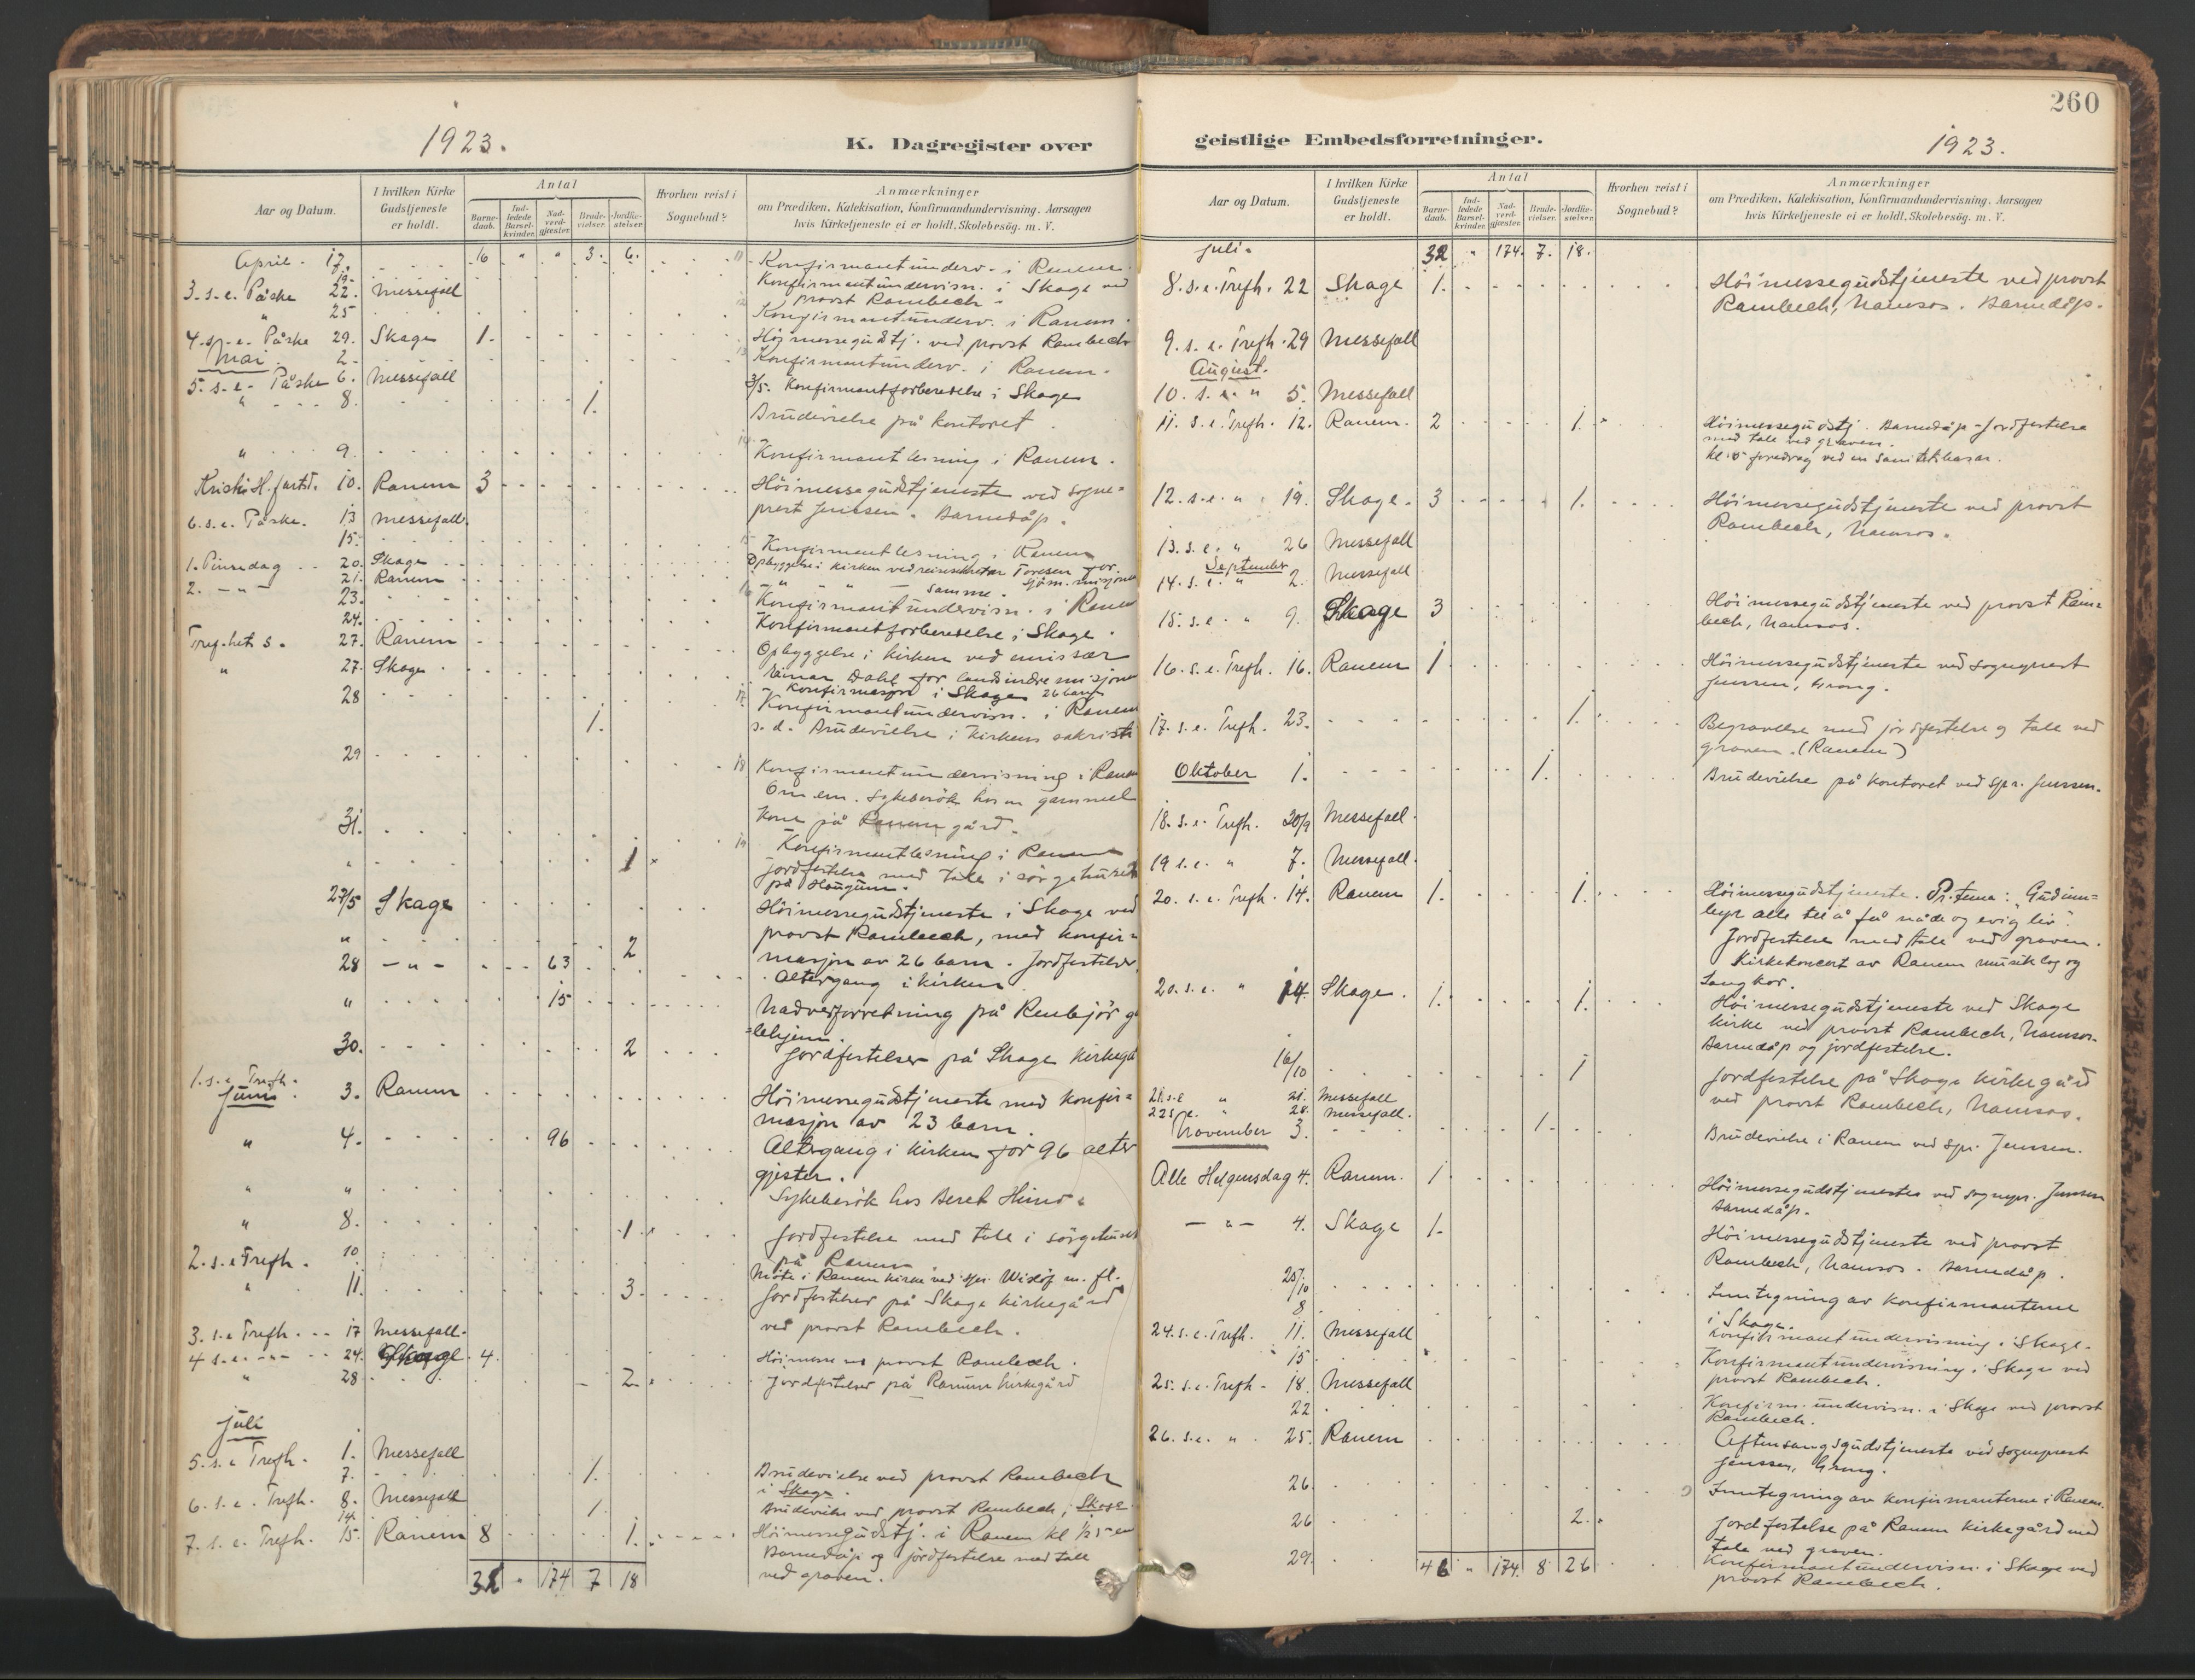 260
1923.
K. Dagregister over
Aar og Datum.
I hvilken Kirke
Gudstjeneste
er holdt.
Antal
Barne-
daab.
Ind-
ledede
Barsel-
kvinder.
Nad-
verd-
gjæster.
Brude-
vielser.
Jordfæ-
stelser.
Hvorhen reist i
Sognebud?
Anmærkninger
om Prædiken, Katekisation, Konfirmandundervisning. Aarsagen
hvis Kirketjeneste ei er holdt, Skolebesøg. m. V.
April. 17. 16 " " 3. 6. 11 Konfirmantunderv. i Ranem.
19. Konfirmantundervisn. i Skage ved
3. s. e. Påske 22. Messefall provst Rambech.
" 25 12 Konfirmantunderv. i Ranem.
4. s. e. Påske 29. Skage 1. Höimessegudstj. ved provst Rambech
Mai 2. 13 Konfirmantunderv. i Ranem.
5. s. e. Påske 6. Messefall 3/5. Konfirmantforberedelse i Skage
" 8. 1. Brudevielse på kontoret.
" 9. 14 Konfirmantlesning i Ranem.
Kristi H. fartsd. 10. Ranem 3 Höimessegudstjeneste ved sogne=
prest Jenssen. Barnedåp.
6. s. e. Påske. 13 Messefall.
15. 15 Konfirmantlesning i Ranem
1. Pinsedag 20. Skage Opbyggelse i kirken ved reisesekretær Toresen for
2. -"- 21. Ranem " " " samme. sjöm. misjonen
23. 16 Konfirmantundervisn. i Ranem
24. Konfirmantforberedelse i Skage.
Tref.hets s. 27. Ranem Opbyggelse i kirken ved emissær
" 27. Skage Einar Dahl for landsindremisjonen
Konfirmasjon i Skage 26 barn
28 17 Konfirmantundervisn. i Ranem
1. s. d. Brudevielse i kirkens sakristi
29 18 Konfirmantundervisning i Ranem
Om em. sykebesök hos en gammel
kone på Ranem gård.
31. 19 Konfirmantlesning i Ranem
" 1 Jordfestelse med tale i sörgehuset
på Haugum.
27/5 Skage Höimessegudstjeneste i Skage ved
provst Rambech, med konfir=
" 2 masjon av 26 barn. Jordfestelser
28 -"- 63 Altergang i kirken
" 15 Nadverforretning på Rembjör g
=lehjem.
30. 2 Jordfestelser på Skage kirkegå
1. s. e. Trefh.
Juni. 3. Ranem Höimessegudstjeneste med konfir=
masjon av 23 barn.
" 4. 96 Altergang i kirken for 96 alter
gjester.
" " Sykebesök hos Beret Himo.
" 8. 1 Jordfestelse med tale i sörgehuset
på Ranem
2. s. e. Trefh. 10 Möte i Ranem kirke ved spr. Widöf m. fl.
" 11. 3 Jordfestelser på Skage kirkegård
ved provst Rambech.
3. s. e. Trefh. 17 Messefall.
4 s. e. -"- 24. Skage 4. Höimesse ved provst Rambech.
" 28 2 Jordfestelser på Ranem kirkegård
Juli
5. s. e. Trefh. 1. Messefall
7. 1. Brudevielse ved provst Rambech
i Skage.
6. s. e. Trefh. 8. Messefall
14. 1. Brudevielse ved provst Rambech, i Skage
7. s. e. Trefh. 15. Ranem 8 1. Höimessegudstj. i Ranem kl 1/2 5 em
Barnedåp og jordfestelse med tale
ved graven.
32 " 174 7 18
1923.
geistlige Embedsforretninger.
Aar og Datum.
I hvilken Kirke
Gudstjeneste
er holdt.
Antal
Barne-
daab.
Ind-
ledede
Barsel-
kvinder.
Nad-
verd-
gjæster.
Brude-
vielser.
Jordfæ-
stelser.
Hvorhen reist i
Sognebud?
Anmærkninger
om Prædiken, Katekisation, Konfirmandundervisning. Aarsagen
hvis Kirketjeneste ei er holdt, Skolebesøg. m. V.
Juli. 32 " 174. 7. 18.
8. s. e. Trefh. 22 Skage 1. Höimessegudstjeneste ved provst
Rambech, Namsos. Barnedåp.
9. s. e. Trefh. 29 Messefall
August.
10. s. e. " 5. Messefall
11. s. e. Trefh. 12. Ranem. 2 1. Höimessegudstj. Barnedåp - Jordfestelse
med tale ved graven.
Kl. 5 foredrag ved en Sanitetsbasar.
12. s. e. " 19. Skage. 3 1. Höimessegudstjeneste ved provst
Rambech, Namsos.
13. s. e. " 26 Messefall
September
14. s. e. " 2. Messefall
15. s. e. " 9. Skage 3 Höimessegudstjeneste ved provst Ram=
bech, Namsos.
16. s. e. Trefh. 16. Ranem 1 Höimessegudstjeneste ved sogneprest
Jenssen, Grong.
17. s. e. Trefh. 23. 1. Begravelse med jordfestelse og tale ved
graven. (Ranem)
Oktober 1. 1. Brudevielse på kontoret ved spr. Jenssen.
18. s. e. Trefh. 30/9 Messefall.
19 s. e. " 7. Messefall.
20. s. e. Trefh. 14. Ranem 1. 1. Höimessegudstjeneste. Pr. tema: "Gud inn=
byr alle til å få nåde og evig liv".
Jordfestelse med tale ved graven.
Kirkekoncert av Ranem musiklag og
Sangkor.
20. s. e. " 14. Skage. 1. 1. Höimessegudstjeneste ved Skage
kirke ved provst Rambech, Namsos.
Barnedåp og jordfestelse.
16/10 1 Jordfestelse på Skage kirkegård
ved provst Rambech, Namsos.
21. s. e " 21. Messefall
22 s. e. " 28. Messefall.
November 3. 1 Brudevielse i Ranem ved spr. Jenssen.
Alle Helgensdag 4. Ranem. 1 Höimessegudstjeneste ved sognepr. Jenssen
Barnedåp.
-"- 4. Skage 1. Höimessegudstjeneste ved provst
Rambech, Namsos. Barnedåp.
25/10 Inntegning av konfirmanterne
i Skage.
8 Konfirmantundervisning i Skage.
24. s. e. Trefh. 11. Messefall
15 Konfirmantundervisning i Skage ved
provst Rambech.
25. s. e. Trefh. 18. Messefall
22 Konfirm. undervisn. i Skage ved provst
Rambech.
26. s. e. " 25. Ranem Aftensangsgudstjeneste ved sogneprest
Jenssen, Grong.
26. Inntegning av konfirmanterne i Ranem.
26 2. Jordfestelse på Ranem kirkegård med
tale ved graven.
29. Konfirmantundervisn. i Skage ved
provst Rambech.
46 " 174. 8 26